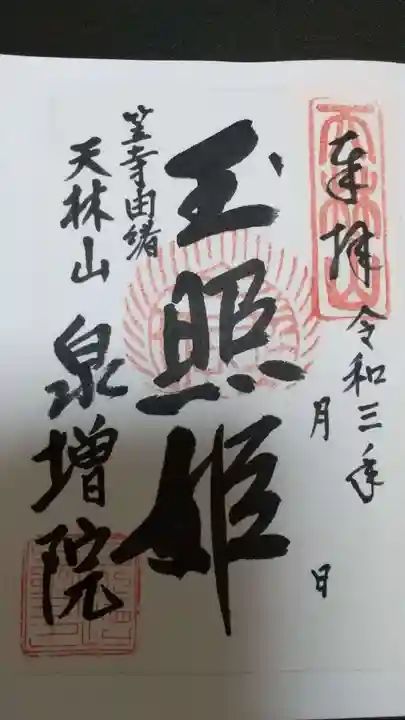 奉拝
令和三年
月 日
玉照姫
笠寺由緒
天林山
泉増院